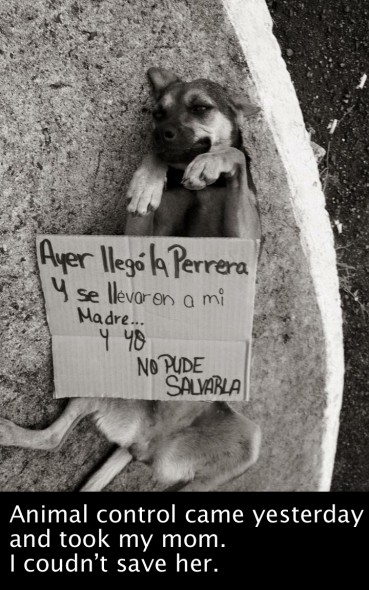 Ayer llegó la Perrera
y se llevaron a mi
Madre...
y yo
NO PUDE
SALVARLA
Animal control came yesterday
and took my mom.
I coudn't save her.